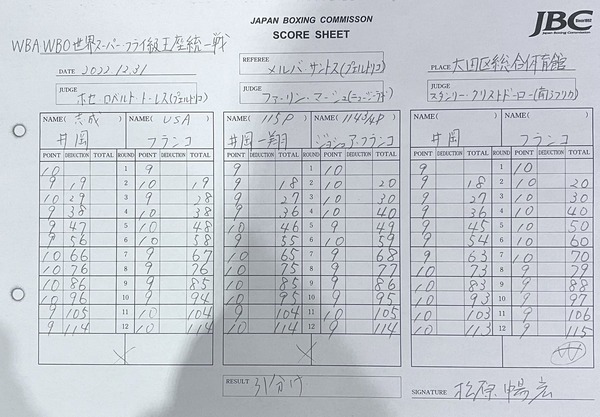 JAPAN BOXING COMMISSON
SCORE SHEET
JBC
Since1952
Japan Boxing Commission
WBA WBO世界スーパー・フライ級王座統一戦
DATE 2022.12.31
REFEREE
メルバ・サントス(プエルトリコ)
PLACE 大田区総合体育館
JUDGE
ホセ ロベルト・トーレス(プエルトリコ)
JUDGE
JUDGE
NAME( 志成 ) NAME( USA ) NAME( 115P ) NAME( 114 3/4P ) NAME( ) NAME( )
井岡 フランコ 井岡一翔 ジョシュア・フランコ 井岡 フランコ
POINT DEDUCTION TOTAL ROUND POINT DEDUCTION TOTAL POINT DEDUCTION TOTAL ROUND POINT DEDUCTION TOTAL POINT DEDUCTION TOTAL ROUND POINT DEDUCTION TOTAL
10 1 9 9 1 10 9 1 10
9 19 2 10 19 9 18 2 10 20 9 18 2 10 20
10 29 3 9 28 9 27 3 10 30 9 27 3 10 30
9 38 4 10 38 9 36 4 10 40 9 36 4 10 40
9 47 5 10 48 10 46 5 9 49 9 45 5 10 50
9 56 6 10 58 9 55 6 10 59 9 54 6 10 60
10 66 7 9 67 10 65 7 9 68 9 63 7 10 70
10 76 8 9 76 10 75 8 9 77 10 73 8 9 79
10 86 9 9 85 10 85 9 9 86 10 83 9 9 88
10 96 10 9 94 10 95 10 9 95 10 93 10 9 97
9 105 11 10 104 9 104 11 10 105 10 103 11 9 106
9 114 12 10 114 10 114 12 9 114 10 113 12 9 115
W
RESULT 引分け
SIGNATURE